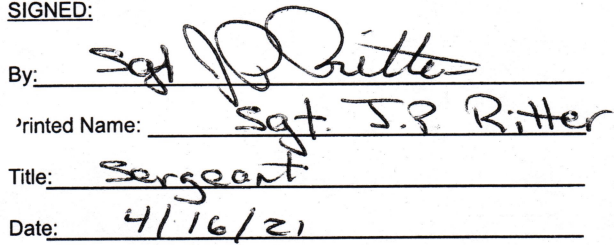 SIGNED:
By: Sgt JP Ritter
rinted Name: Sgt. J.P Ritter
Title: Sergeant
Date: 4/16/21